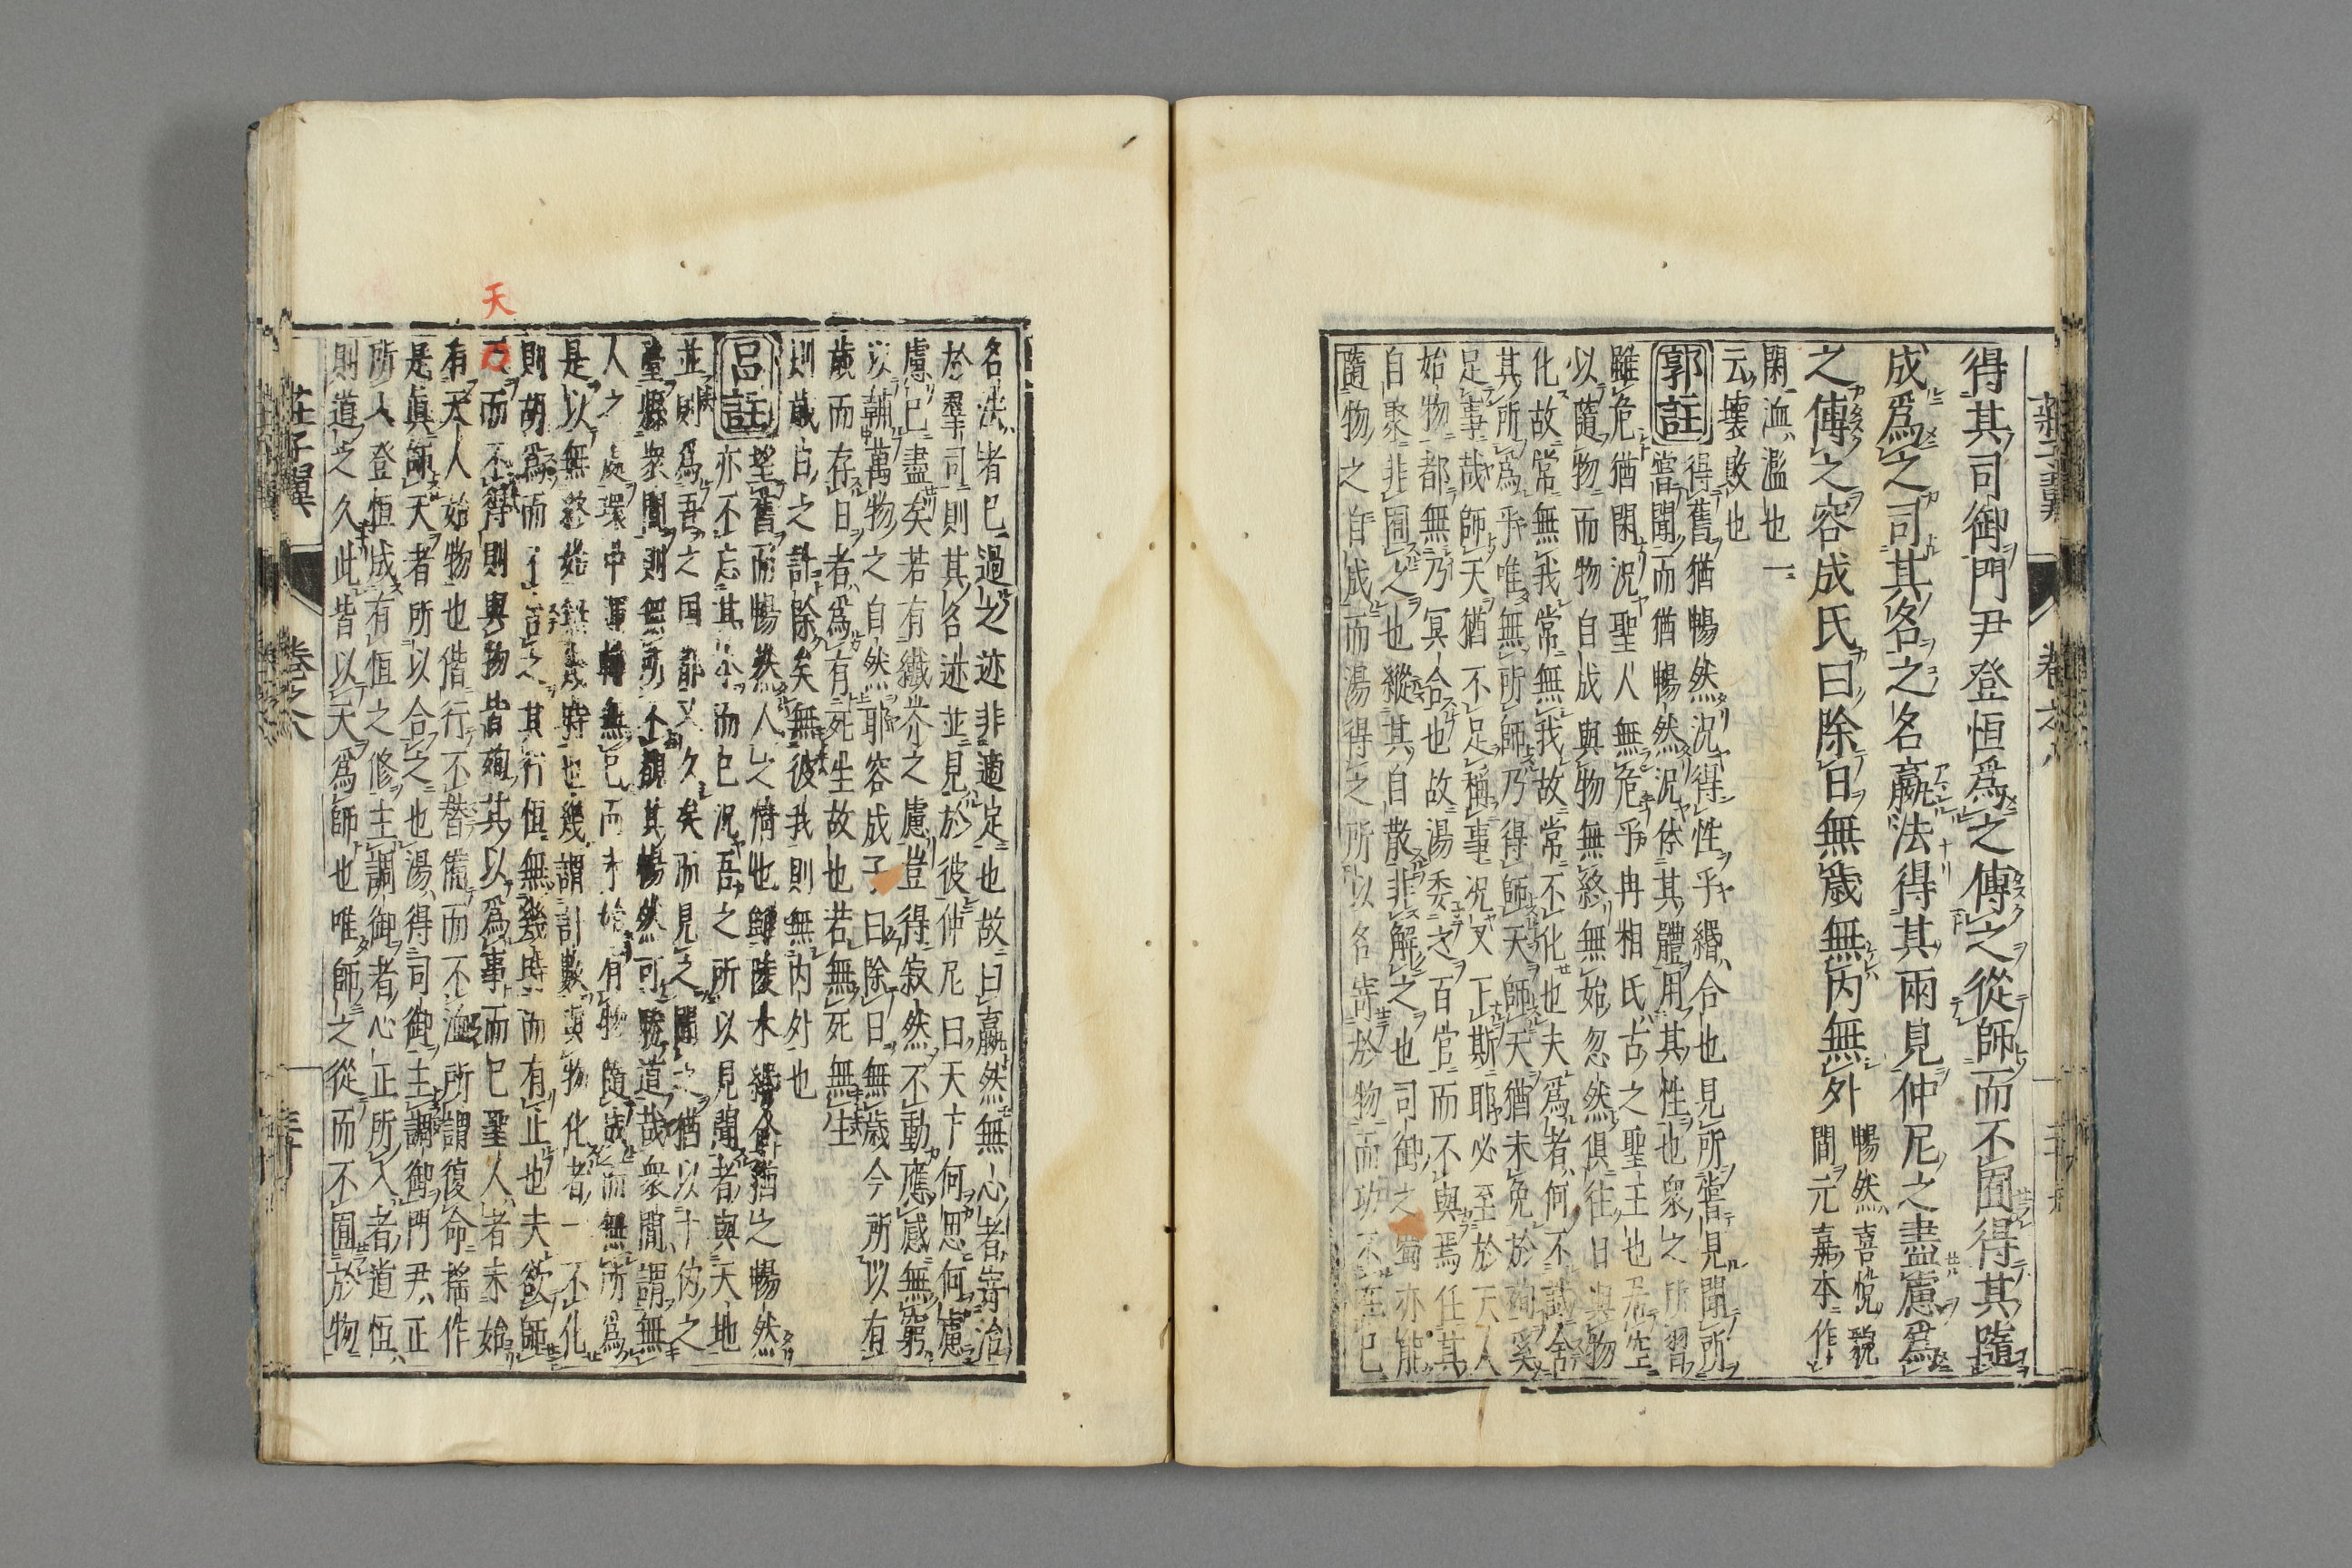 得其司御門尹登恒爲之傅之從師而不囿得其隨
成爲之司其名之名嬴法得其兩見仲尼之盡慮爲
之傅之容成氏曰除日無歲無内無外
暢然喜悅貌
間元嘉本作
閑洫濫也一
云壊敗也
郭註
得舊猶暢然況得性乎緡合也見所嘗見聞所
嘗聞而猶暢然況体其體用其性也衆之所習
雖危猶閑況聖人無危乎冉相氏古之聖王也居空
以隨物而物自成與物無終無始忽然俱往日與物
化故常無我常無我故常不化也夫爲者何不試舍
其所爲乎唯無所師乃得師天師天猶未免於殉奚
足事哉師天猶不足稱事況又下斯耶必至於天人
始物都無乃冥合也故湯委之百官而不與焉任其
自聚非囿之也縱其自散非解之也司御之属亦能
隨物之自成而湯得之所以名寄於物而功不在己
名法者已過之迹非適足也故曰嬴然無心者寄治
於羣司則其名迹並見於彼仲尼曰天下何思何慮
慮已盡矣若有纖芥之慮豈得寂然不動應感無窮
以輔萬物之自然耶容成子曰除日無歲今所以有
歲而存日者爲有死生故也若無死無生
則歲日之計除矣無彼我則無内外也
呂註
望舊而暢然人之情也歸陵木緡入猶之暢然
亦不忘其本而已況吾之所以見聞者與天地
並則爲吾之国都又久矣而見之聞之猶以十仞之
臺縣衆間則無所不覩其暢然可勝道哉衆間謂無
人之處環中運轉無已而才始有物隨成而無所爲
是以無終始無幾時也幾謂計數與物化者一不化
則胡爲而不舍之其行恒無幾時而有止也夫欲師
天而不得則與物皆殉其以爲事而已聖人者未始
有天人始物也偕行不替備而不洫所謂復命揺作
是眞師天者所以合之也湯得司御主調御門尹正
所入登恒成有恒之修主調御者心正所入者道恒
則道之久此皆以天爲師也唯師之從而不囿於物
莊子翼
卷之八
天